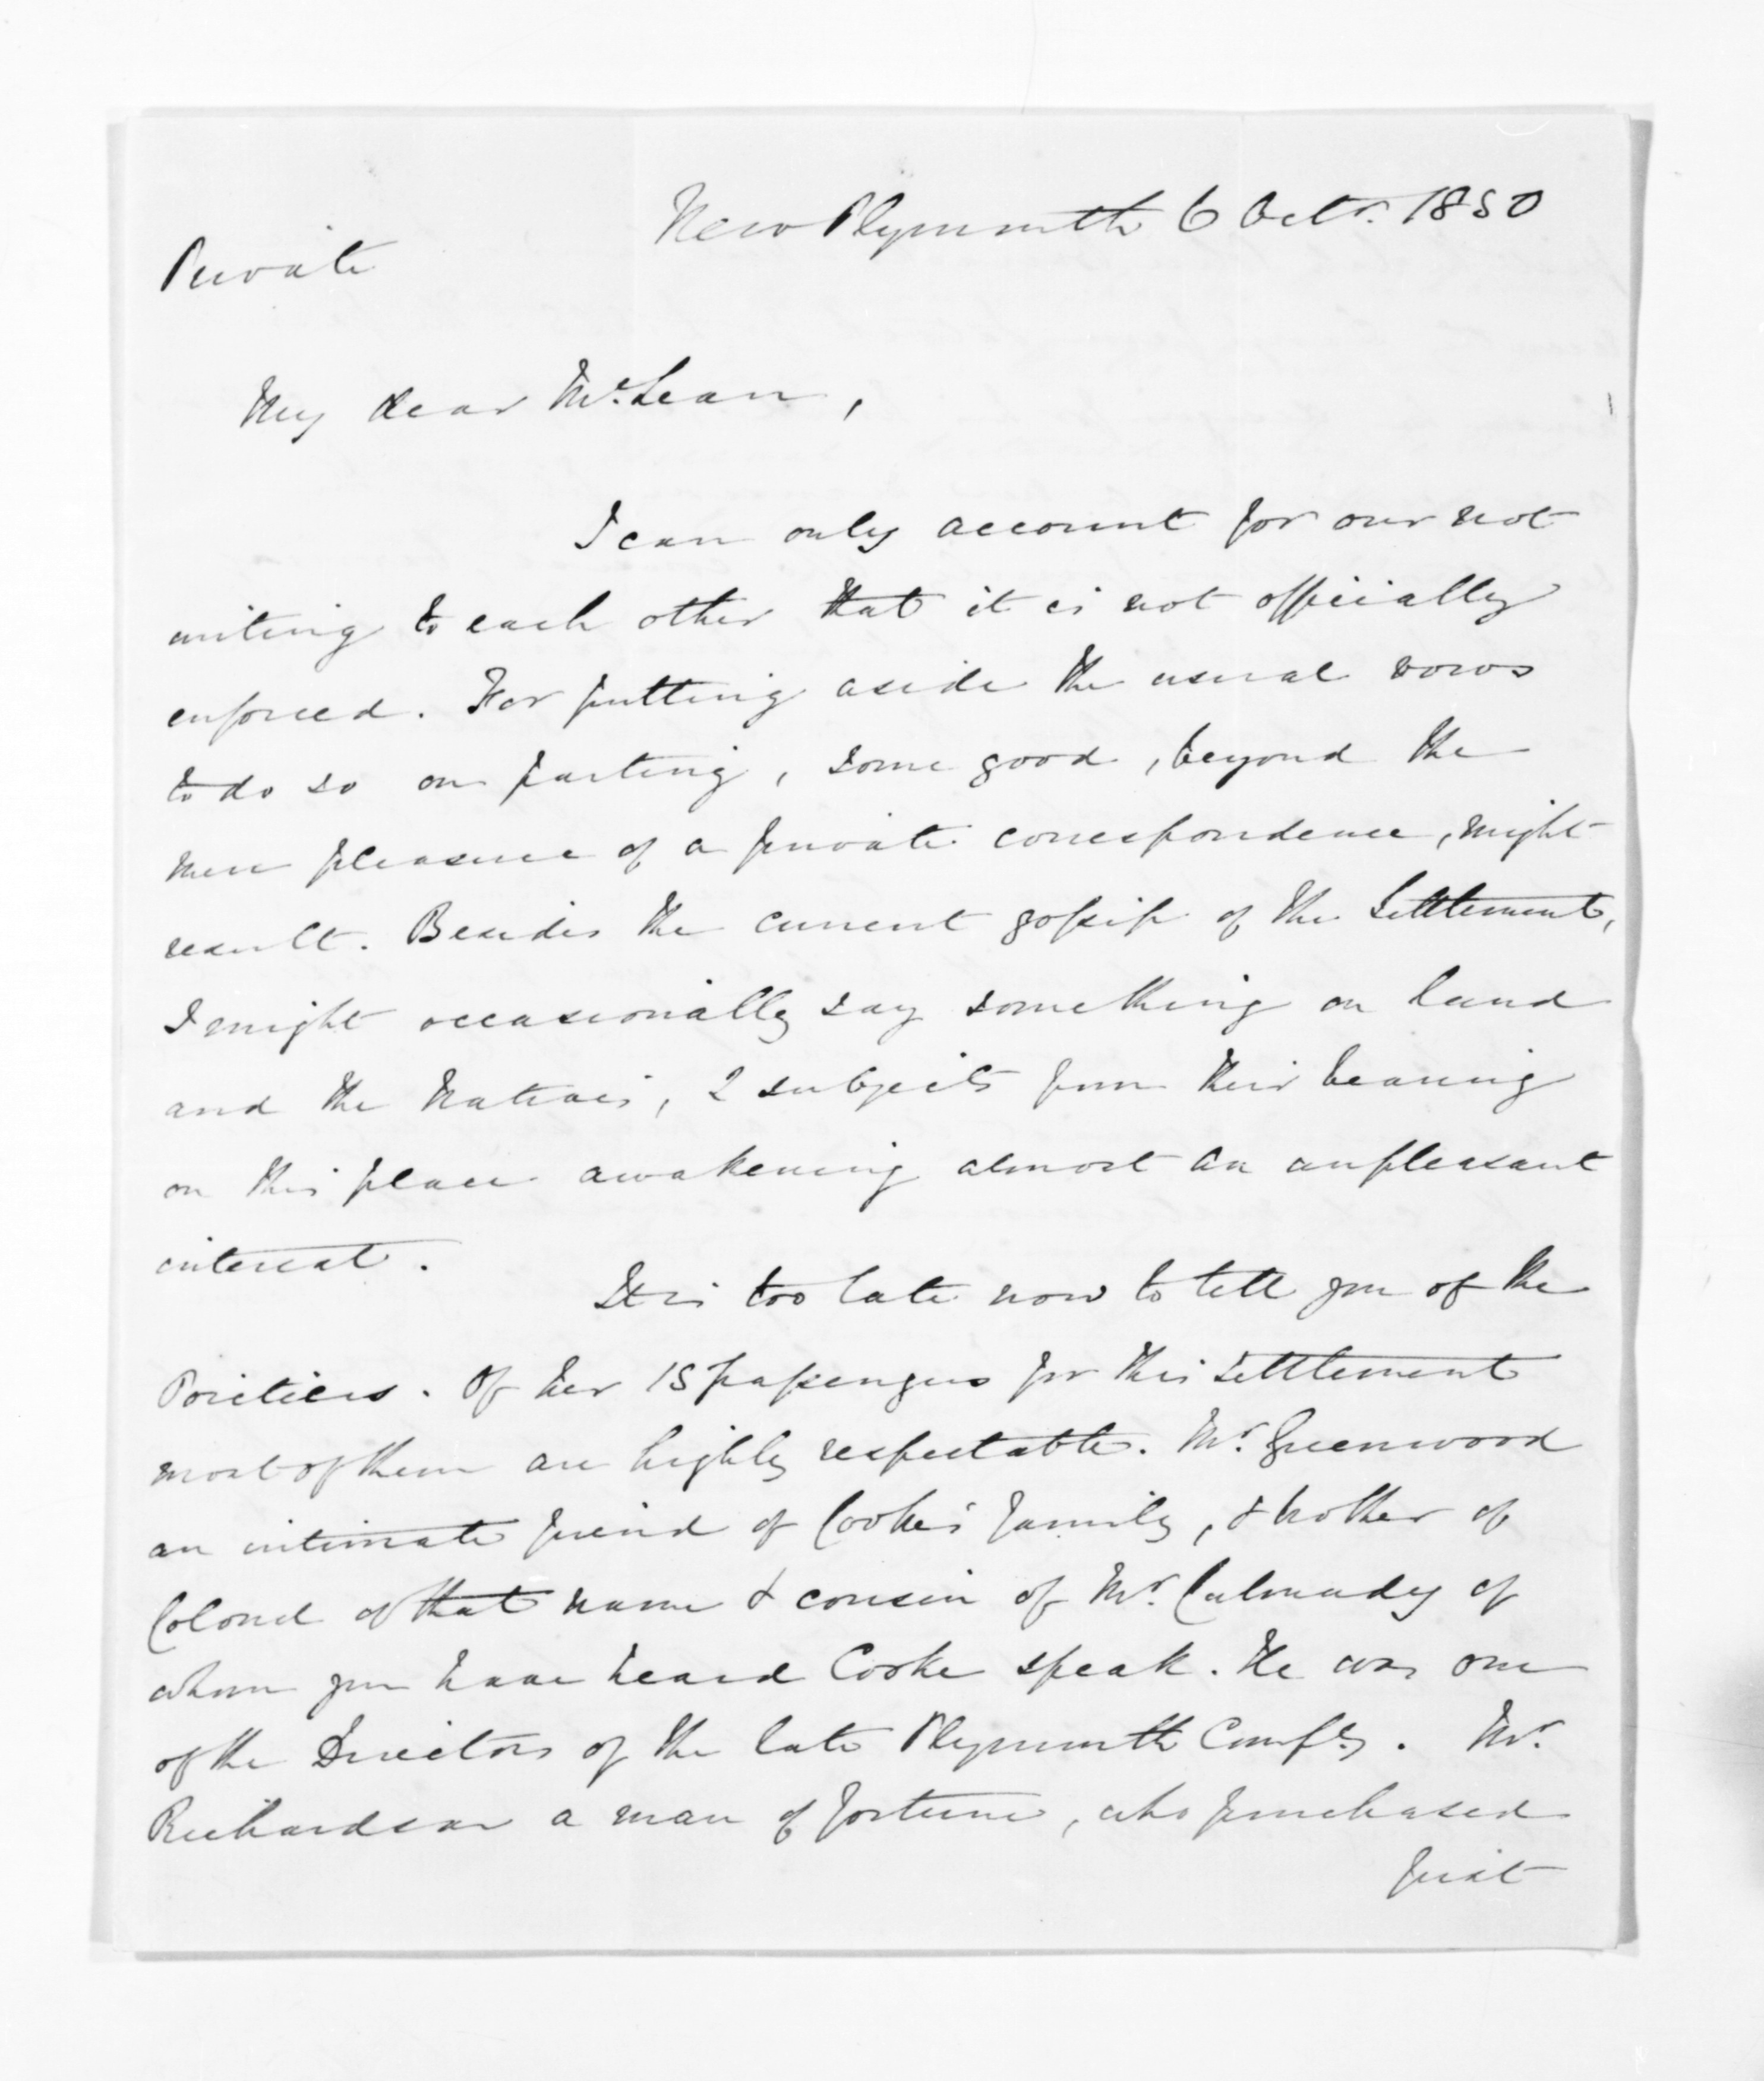 New Plymouth 6 Octr. 1850
Private
My dear McLean,
I can only account for our not
writing to each other that it is not officially
enforced. For putting aside the usual vows
to do so on parting, some good, beyond the
mere pleasure of a private correspondence, might
result. Besides the current gossip of the Settlement,
I might occasionally say something on land
and the Natives, 2 subjects from their bearing
on this place awakening almost an unpleasant
interest.
It is too late now to tell you of the
Poictiers. Of her 15 passengers for this settlement
most of them are highly respectable. Mr. Greenwood
an intimate friend of Cooke's family, & brother of
Colonel of that name & cousin of Mr. Calmady of
whom you have heard Cooke speak. He was one
of the Directors of the late Plymouth Compy. Mr.
Richardson a man of fortune, who purchased
just